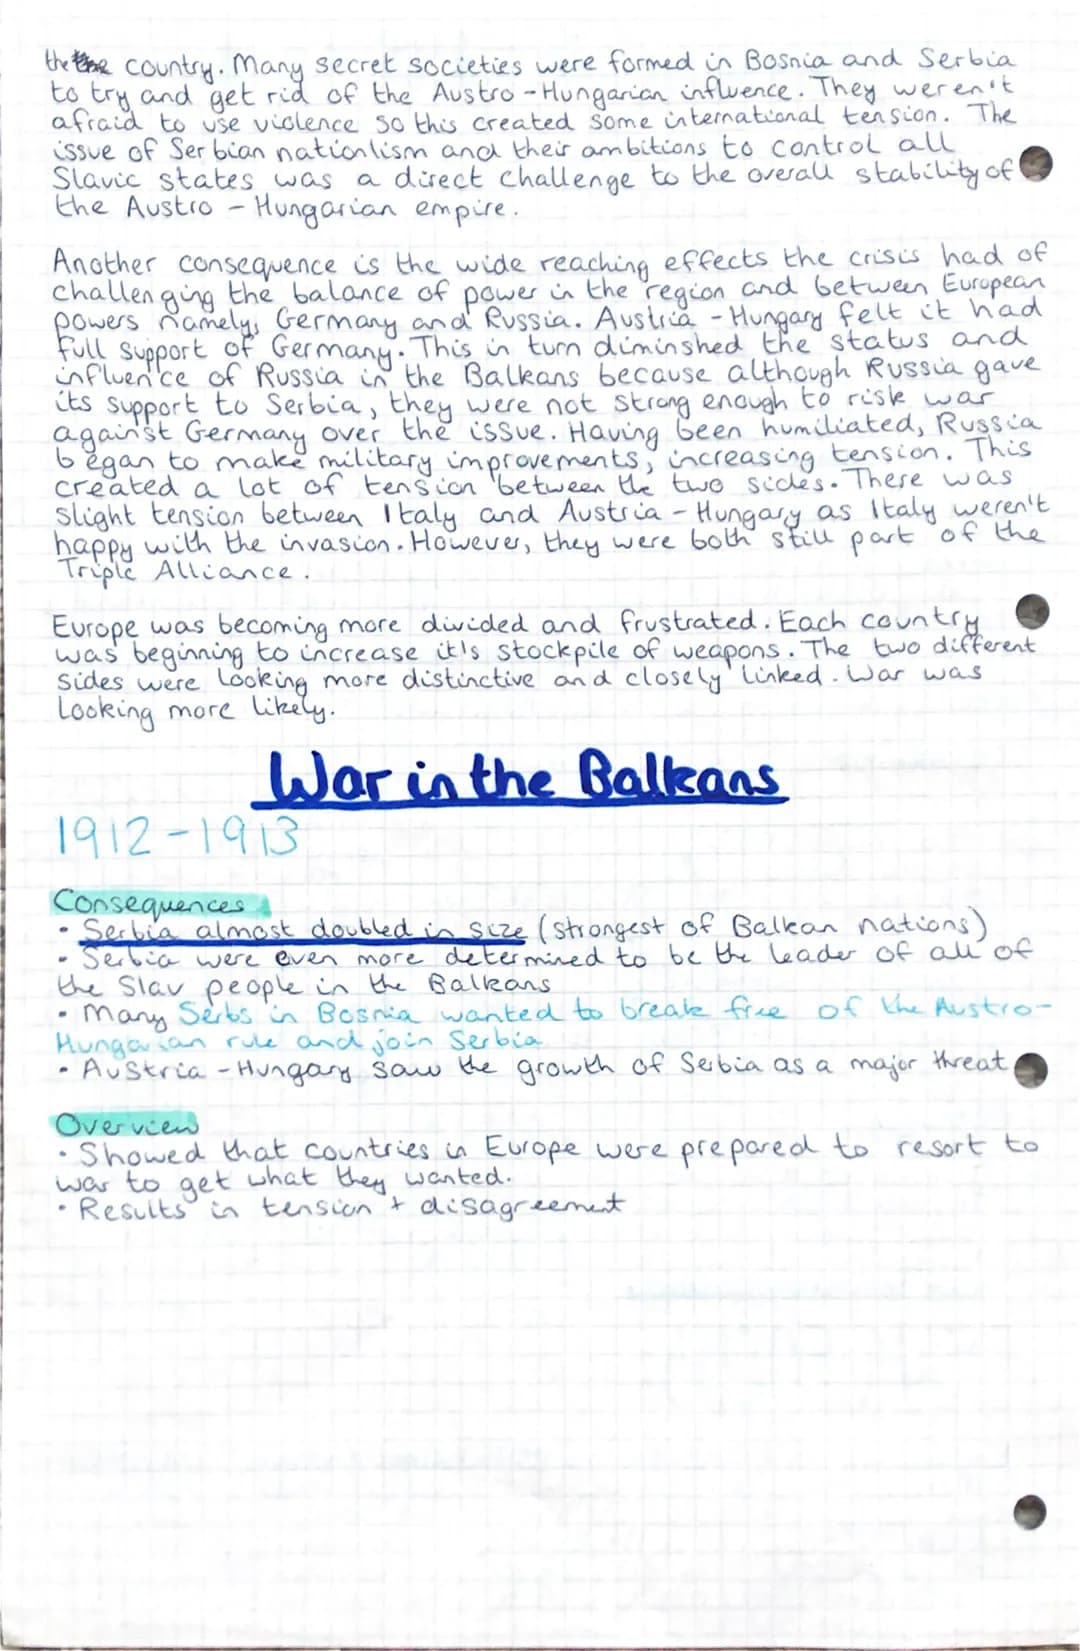 the the country. Many secret societies were formed in Bosnia and Serbia
to try and get rid of the Austro-Hungarian influence. They weren't
afraid to use violence so this created some international tension. The
issue of Serbian nationlism and their ambitions to control all
Slavic states was a direct challenge to the overall stability of
the Austro-Hungarian empire.
Another consequence is the wide reaching effects the crisis had of
challenging the balance of power in the region and between European
powers namely, Germany and Russia. Austria-Hungary felt it had
full support of Germany. This in turn diminshed the status and
influence of Russia in the Balkans because although Russia gave
its support to Serbia, they were not strong enough to risk war
against Germany over the issue. Having been humiliated, Russia
began to make military improvements, increasing tension. This
created a lot of tension between the two sides. There was
slight tension between Italy and Austria-Hungary as Italy weren't
happy with the invasion. However, they were both still part of the
Triple Alliance.
Europe was becoming more divided and frustrated. Each country
was beginning to increase it's stockpile of weapons. The two different
sides were looking more distinctive and closely linked. War was
looking more likely.
War in the Balkans
1912-1913
Consequences
• Serbia almost doubled in size (strongest of Balkan nations)
• Serbia were even more determined to be the leader of all of
the Slav people in the Balkans
• Many Serbs in Bosnia wanted to break free of the Austro-
Hungarian rule and join Serbia
• Austria-Hungary saw the growth of Serbia as a major threat
Overview
• Showed that countries in Europe were prepared to resort to
war to get what they wanted.
• Results in tension + disagreement